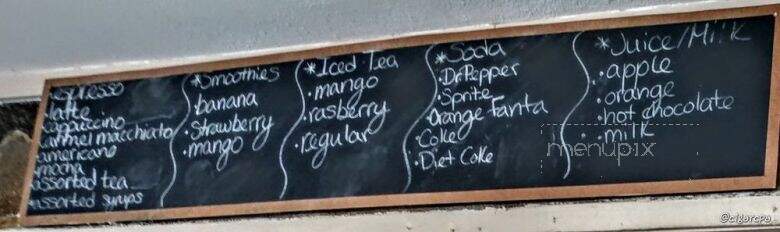 espresso
latte
cappuccino
carmel macchiato
americano
mocha
assorted tea
assorted syrups
*Smoothies
banana
·Strawberry
·mango
*Iced Tea
·mango
·rasberry
·regular
*Soda
·Dr Pepper
·Sprite
Orange Fanta
·Coke
·Diet Coke
*Juice/Milk
·apple
·orange
·hot chocolate
·milk
menupix
@cigarcpa